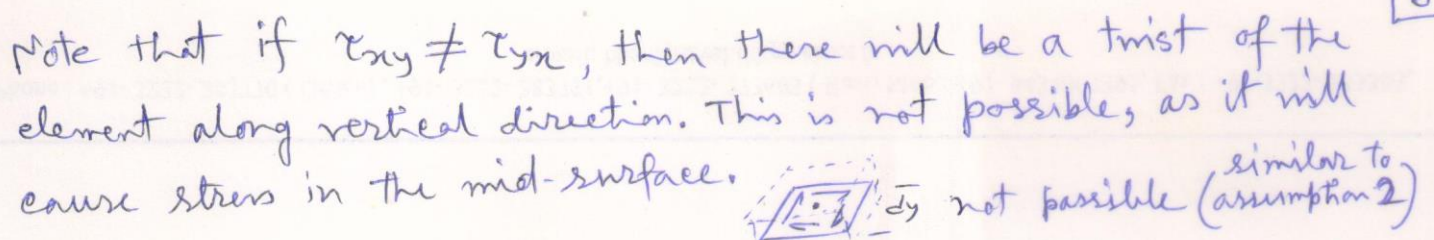 Note that if τxy ≠ τyx, then there will be a twist of the
element along vertical direction. This is not possible, as it will
cause stress in the mid-surface. not possible (similar to assumption 2)